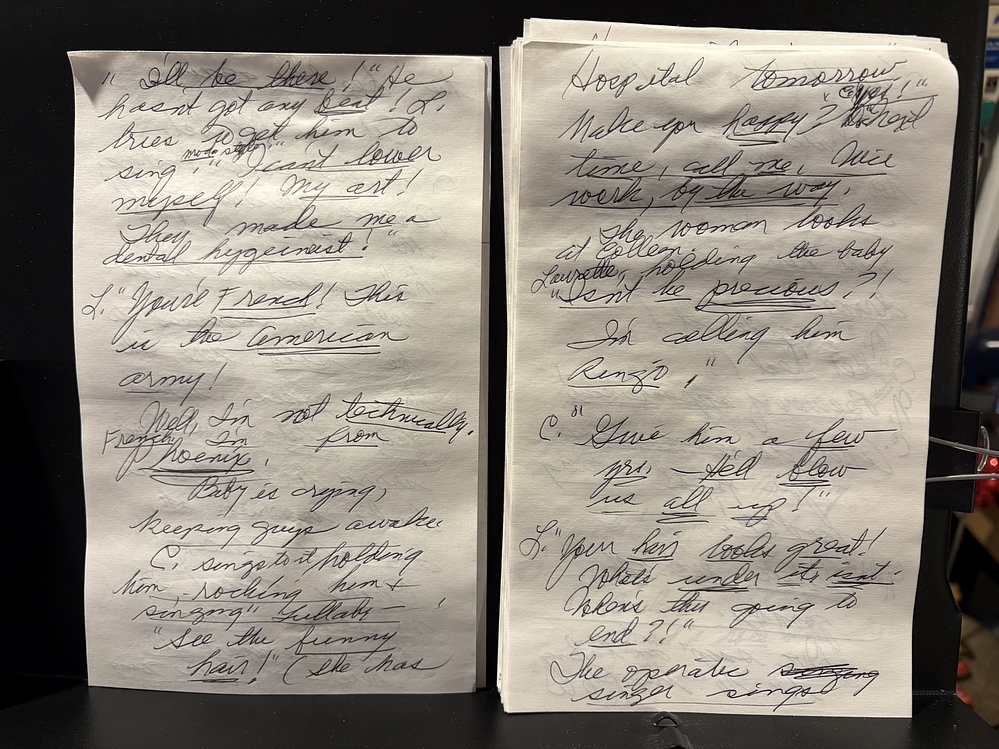 " I'll be there!" He
hasn't got any beat! L.
tries to get him to
sing, "I can't lower
myself! My art!
They made me a
dental hygeineist!"
L. "You're French! This
is the American
army!
Well, I'm not technically
French. I'm from
Phoenix.
Baby is crying,
keeping guys awake
C. sings to it holding
him, rocking him +
singing "Lullaby — !
"See the funny
hair!" (She has
Hospital tomorrow
Make you happy? next
time, call me. Nice
work, by the way.
The woman looks
at Colleen.
Laurette, holding the baby
"Isn't he precious?!
I'm calling him
Ringo."
C. "Give him a few
yrs. — He'll blow
us all up!"
L. "Your hair looks great!
What's under it isn't.
When's this going to
end?!"
The operatic
singer sings